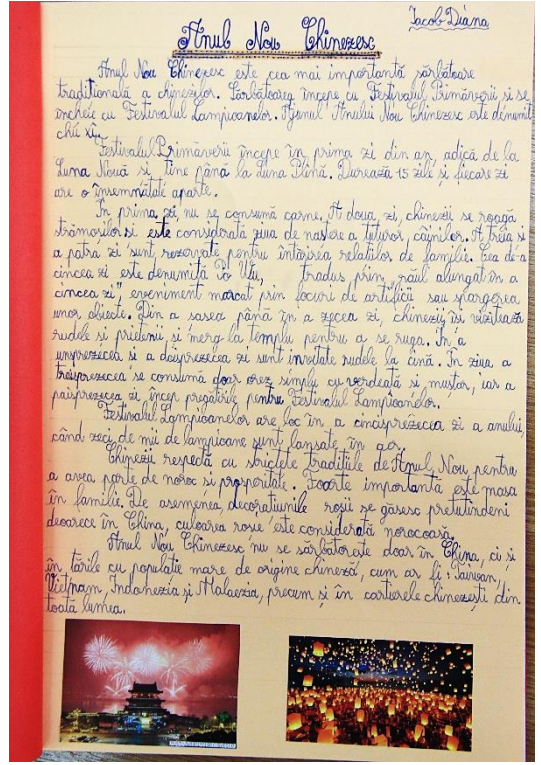 Iacob Diana
Anul Nou Chinezesc
Anul Nou Chinezesc este cea mai importantă sărbătoare
tradițională a chinezilor. Sărbătoarea începe cu Festivalul Primăverii și se
încheie cu Festivalul Lampioanelor. Ajunul Anului Nou Chinezesc este denumit
chú xī.
Festivalul Primăverii începe în prima zi din an, adică de la
Luna Nouă și ține până la Luna Plină. Durează 15 zile și fiecare zi
are o însemnătate aparte.
În prima zi nu se consumă carne. A doua zi, chinezii se roagă
strămoșilor și este considerată ziua de naștere a tuturor câinilor. A treia și
a patra zi sunt rezervate pentru întărirea relațiilor de familie. Cea de-a
cincea zi este denumită Po Wu, tradus prin „răul alungat în a
cincea zi", eveniment marcat prin focuri de artificii sau spargerea
unor obiecte. Din a șasea până în a zecea zi, chinezii își vizitează
rudele și prietenii și merg la templu pentru a se ruga. În a
unsprezecea și a doisprezecea zi sunt invitate rudele la cină. În ziua a
treisprezecea se consumă doar orez simplu cu verdeață și muștar, iar a
paisprezecea zi încep pregătirile pentru Festivalul Lampioanelor.
Festivalul Lampioanelor are loc în a cincisprezecea zi a anului,
când zeci de mii de lampioane sunt lansate în aer.
Chinezii respectă cu strictețe tradițiile de Anul Nou pentru
a avea parte de noroc și prosperitate. Foarte importantă este masa
în familie. De asemenea, decorațiunile roșii se găsesc pretutindeni
deoarece în China, culoarea roșie este considerată norocoasă.
Anul Nou Chinezesc nu se sărbătorește doar în China, ci și
în țările cu populație mare de origine chineză, cum ar fi: Taiwan,
Vietnam, Indonezia și Malaezia, precum și în cartierele chinezești din
toată lumea.